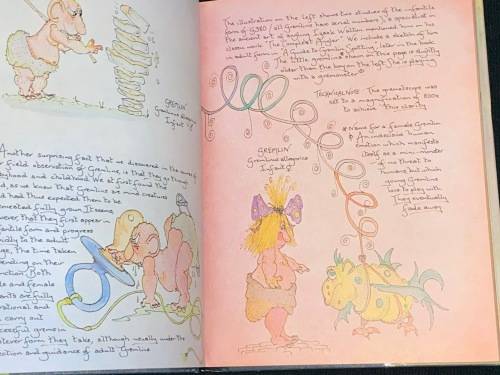 GREMLIN
Gremlinus allegorica
Infant ♂
Another surprising fact that we discovered in the course of
field observation of Gremlins, is that they go through
babyhood and childhood. At first I found this
odd, as we knew that Gremlins are mind creatures
and had thus expected them to be
fully grown. It seems
however that they first appear in
infantile form and progress
to the adult
the time taken
depending on their
function. Both
male and female
infants are fully
operational and
can carry out
successful gremein
whatever form they take, although usually under the
direction and guidance of adult Gremlins
The illustration on the left shows two studies of the infantile
form of G980 (all Gremlins have serial numbers), a specialist in
the ancient art of angling. Izaak Walton mentioned him in his
classic work 'The Compleat Angler'. We include a sketch of him
in adult form in 'A Guide to Gremlin Spotting', later in the book.
The little gremlina shown on this page is slightly
older than the boy on the left. She is playing
with a
TECHNICAL NOTE The gremelscope was
set to a magnification of 800x
to achieve this clarity
Name for a female Gremlin
An indecisive human
emotion which manifests
itself as a mini-monster
of no threat to
humans but which
young Gremlins
love to play with.
They eventually
fade away
GREMLIN
Gremlinus allegorica
Infant ♀